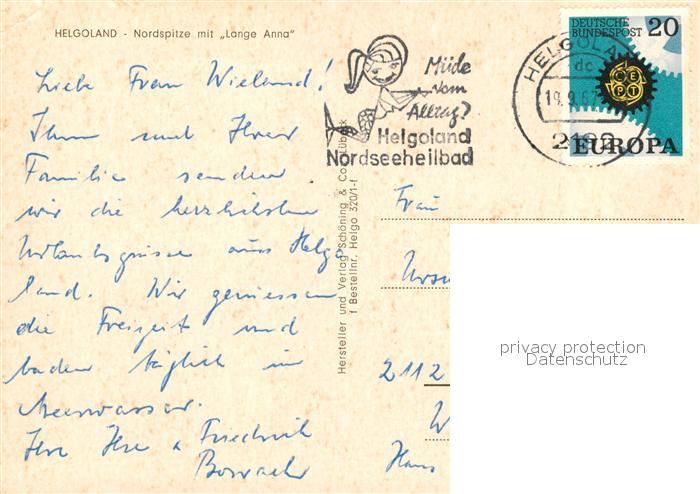 HELGOLAND - Nordspitze mit „Lange Anna"
Liebe Frau Wieland!
Ihnen und Ihrer
Familie senden
wir die herzlichsten
Urlaubsgrüsse aus Helgo
land. Wir geniessen
die Freizeit und
baden täglich im
Meerwasser.
Ihre Ilse u Friedrich
Müde
vom
Alltag?
Helgoland
Nordseeheilbad
HELGOLA
dc
19.9.67
2192
DEUTSCHE
BUNDESPOST 20
CEPT
EUROPA
Hersteller und Verlag Schöning & Co., Lübeck
f Bestellnr. Helgo 320/1-f
Frau
Ursu
2112
W
Hans
privacy protection
Datenschutz